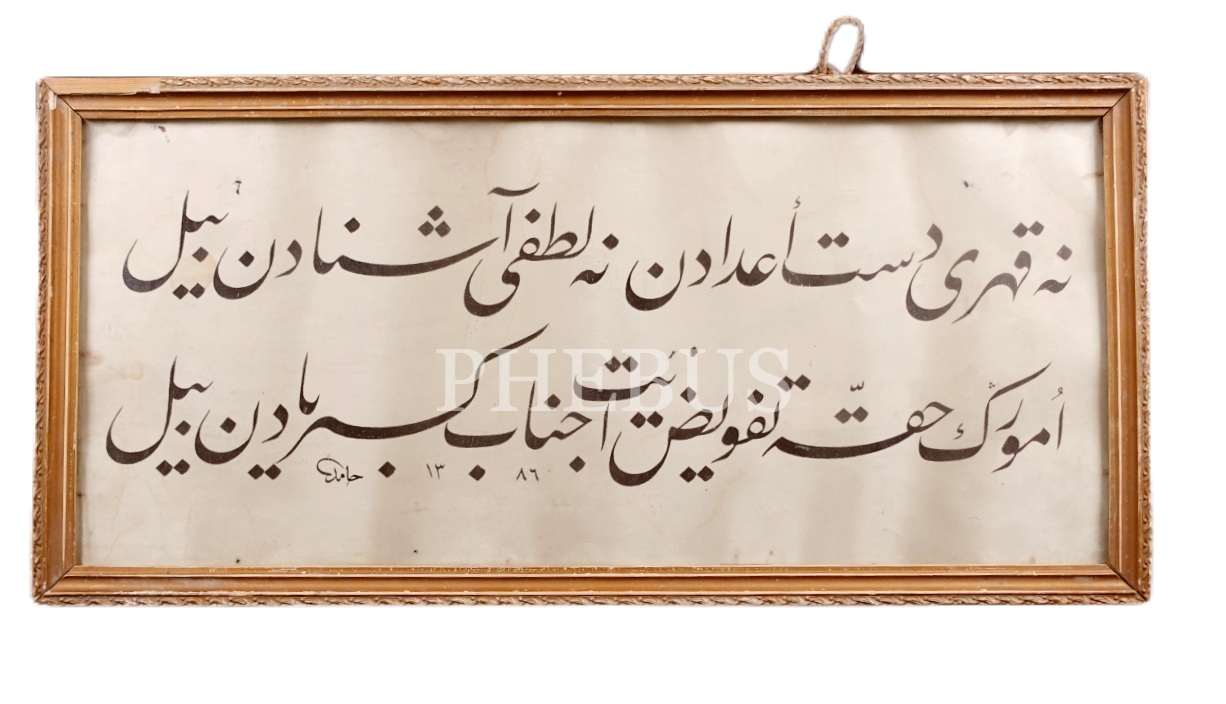 نه قهرى دست أعدادن نه لطفى آشنادن بيل
اُمورڭ حقّه تفويض ايت جناب كبريادن بيل
حامد ١٣٨٦
PHEBUS